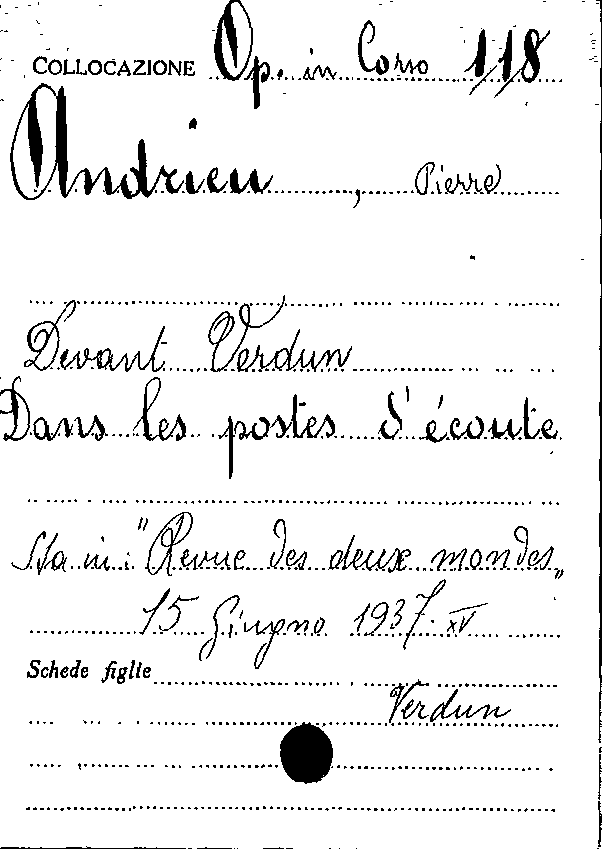 COLLOCAZIONE Op. in Corso 118
Andrieu, Pierre
Devant Verdun
Dans les postes d'écoute
Sta in: "Revue des deux mondes„
15 Giugno 1937. XV
Schede figlie
Verdun